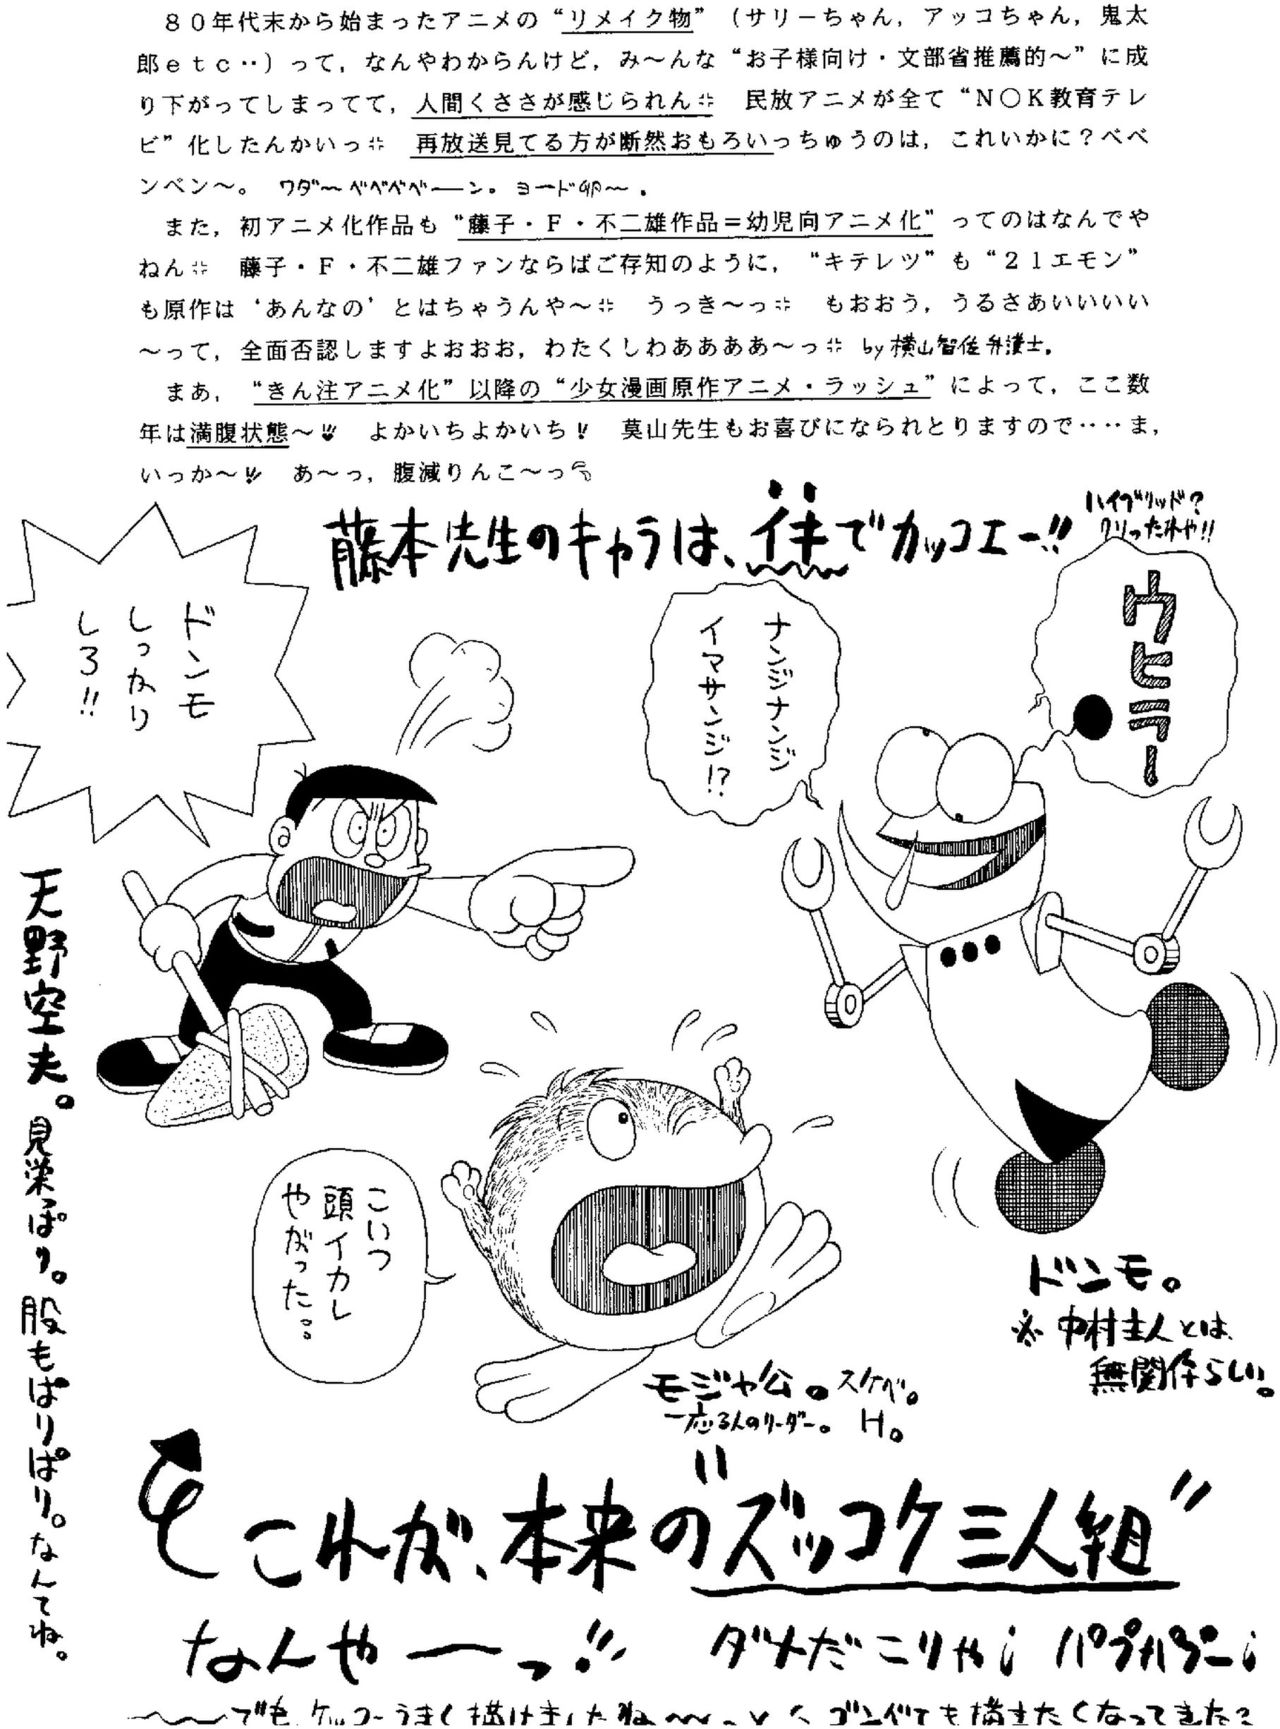 80年代末から始まったアニメの“リメイク物”(サリーちゃん,アッコちゃん,鬼太
郎etc‥)って,なんやわからんけど,み〜んな“お子様向け・文部省推薦的〜”に成
り下がってしまってて,人間くささが感じられん 民放アニメが全て“N○K教育テレ
ビ”化したんかいっ 再放送見てる方が断然おもろいっちゅうのは,これいかに?ベベ
ンベン〜。 ワダ〜ベベベベーン。ヨード卵〜.
また,初アニメ化作品も“藤子・F・不二雄作品=幼児向アニメ化”ってのはなんでや
ねん 藤子・F・不二雄ファンならばご存知のように,“キテレツ”も“21エモン”
も原作は‘あんなの’とはちゃうんや〜 うっき〜っ もおおう,うるさあいいいい
〜って,全面否認しますよおおお,わたくしわああああ〜っ by 横山智佐弁護士.
まあ,“きん注アニメ化”以降の“少女漫画原作アニメ・ラッシュ”によって,ここ数
年は満腹状態〜!! よかいちよかいち! 莫山先生もお喜びになられとりますので‥‥ま,
いっか〜!! あ〜っ,腹減りんこ〜っ
藤本先生のキャラは、イキでカッコエー!!
ハイブリッド?
クリったれや!!
ウヒラー
ナンジナンジ
イマサンジ!?
ドンモ
しっかり
しろ!!
天野空夫。見栄っぱり。股もぱりぱり。なんてね。
こいつ
頭イカレ
やがった‥
ドンモ。
※中村主人とは、
無関係らしい。
モジャ公。スケベ。
一応3人のリーダー。H。
これが、本来の“ズッコケ三人組”
なんやーっ!! ダメだこりゃ¡ パプパプー¡
〜でも、ケッコーうまく描けましたね〜〜